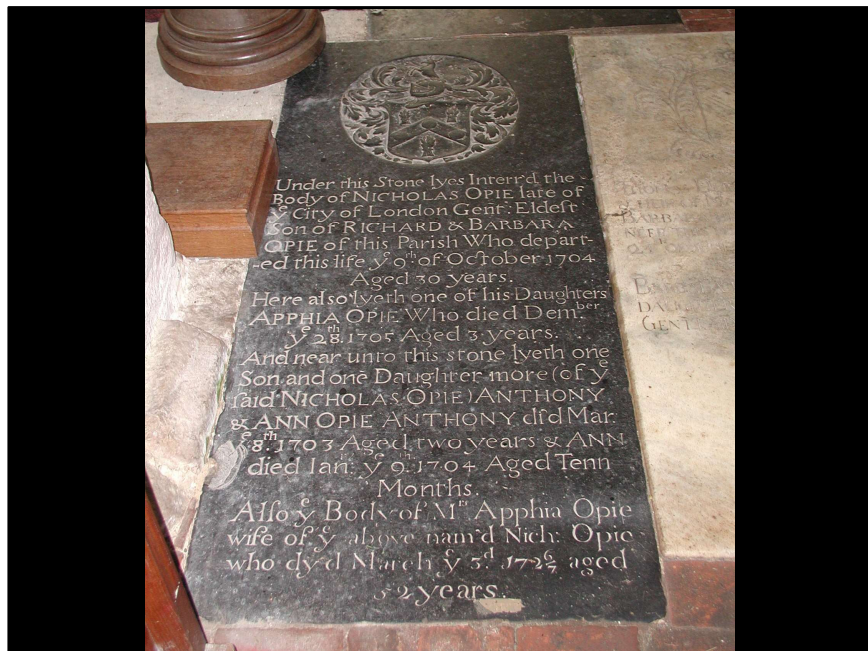 Under this Stone lyes Interr'd the
Body of NICHOLAS OPIE late of
yᵉ City of London Genᵗ: Eldest
Son of RICHARD & BARBARA
OPIE of this Parish Who depart-
-ed this life yᵉ 9ᵗʰ of October 1704
Aged 30 years.
Here also lyeth one of his Daughters
APPHIA OPIE Who died Demᵇᵉʳ
yᵉ 28ᵗʰ 1705 Aged 3 years.
And near unto this stone lyeth one
Son and one Daughter more (of yᵉ
said NICHOLAS OPIE) ANTHONY
& ANN OPIE ANTHONY did Mar
yᵉ 8ᵗʰ 1703 Aged two years & ANN
died Ian: yᵉ 9ᵗʰ 1704 Aged Tenn
Months.
Also yᵉ Body of Mʳˢ Apphia Opie
wife of yᵉ above nam'd Nich: Opie
who dy'd March yᵉ 3ᵈ 172 6/7 aged
52 years.
BARBARA